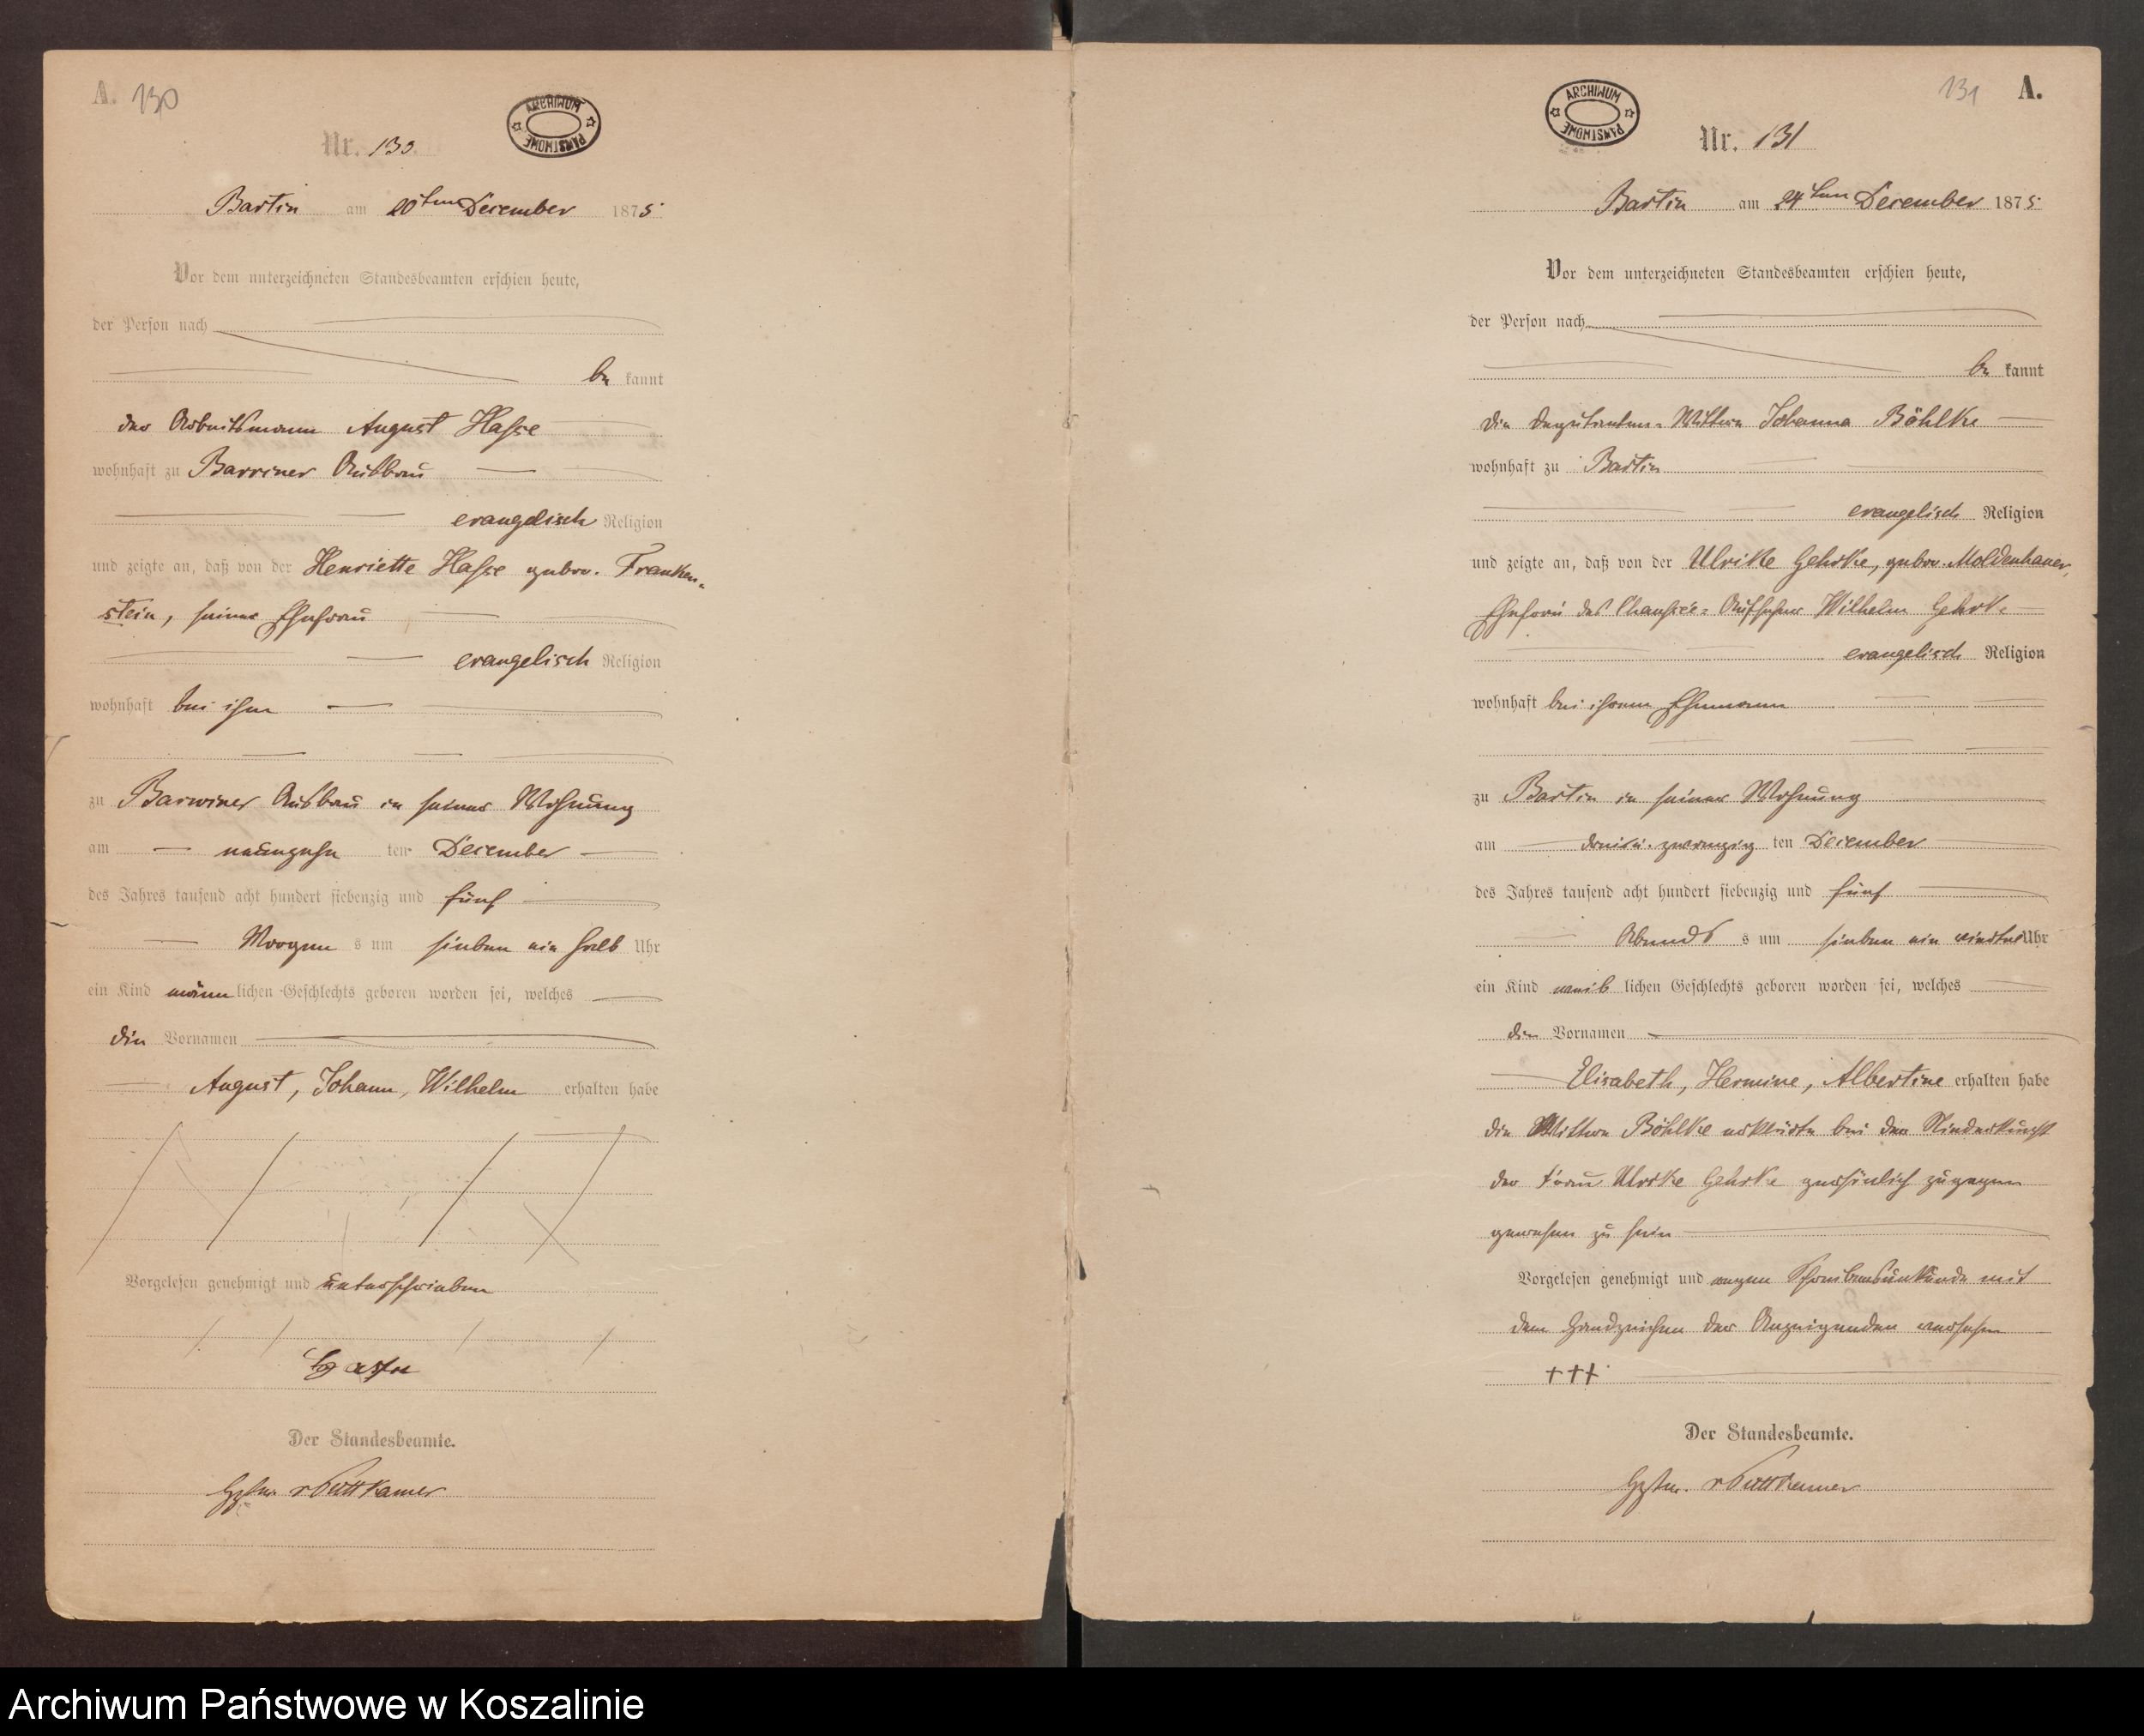 A. 130
ARCHIWUM PAŃSTWOWE
Nr. 130.
Bartin am 20ten December 1875
Vor dem unterzeichneten Standesbeamten erschien heute,
der Person nach
be kannt
der Arbeitsmann August Hasse
wohnhaft zu Barviner Ausbau
evangelisch Religion
und zeigte an, daß von der Henriette Hasse gebor. Franken-
stein, seiner Ehefrau
evangelisch Religion
wohnhaft bei ihm
zu Barwiner Ausbau in seiner Wohnung
am neunzehn ten December
des Jahres tausend acht hundert siebenzig und fünf
Morgen s um sieben ein halb Uhr
ein Kind männ lichen Geschlechts geboren worden sei, welches
die Vornamen
August, Johann, Wilhelm erhalten habe
Vorgelesen genehmigt und unterschrieben
Der Standesbeamte.
v Puttkamer
131 A.
ARCHIWUM PAŃSTWOWE
Nr. 131
Bartin am 24ten December 1875
Vor dem unterzeichneten Standesbeamten erschien heute,
der Person nach
be kannt
die Deputanten-Wittwe Johanna Böhlke
wohnhaft zu Bartin
evangelisch Religion
und zeigte an, daß von der Ulrike Gehrke, gebor. Moldenhauer,
Ehefrau des Chaussee-Aufseher Wilhelm Gehrke
evangelisch Religion
wohnhaft bei ihrem Ehemann
zu Bartin in seiner Wohnung
am dreiu. zwanzig ten December
des Jahres tausend acht hundert siebenzig und fünf
Abends s um sieben ein viertel Uhr
ein Kind weib lichen Geschlechts geboren worden sei, welches
die Vornamen
Elisabeth, Hermine, Albertine erhalten habe
die Wittwe Böhlke erklärte bei der Niederkunft
der Frau Ulrike Gehrke persönlich zugegen
gewesen zu sein
Vorgelesen genehmigt und wegen Schreibensunkunde mit
dem Handzeichen der Anzeigenden versehen
+++
Der Standesbeamte.
v Puttkamer
Archiwum Państwowe w Koszalinie